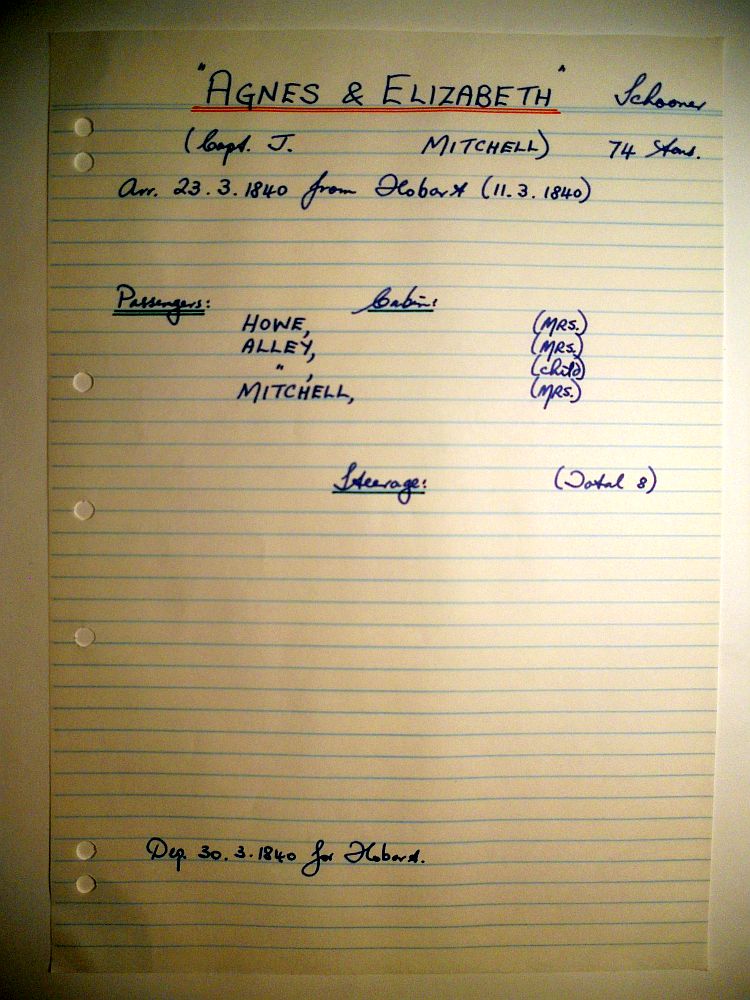 "AGNES & ELIZABETH" Schooner
(Capt. J. MITCHELL) 74 tons.
Arr. 23.3.1840 from Hobart (11.3.1840)
Passengers: Cabin:
HOWE, (MRS.)
ALLEY, (MRS.)
" , (child)
MITCHELL, (MRS.)
Steerage: (Total 8)
Dep. 30.3.1840 for Hobart.